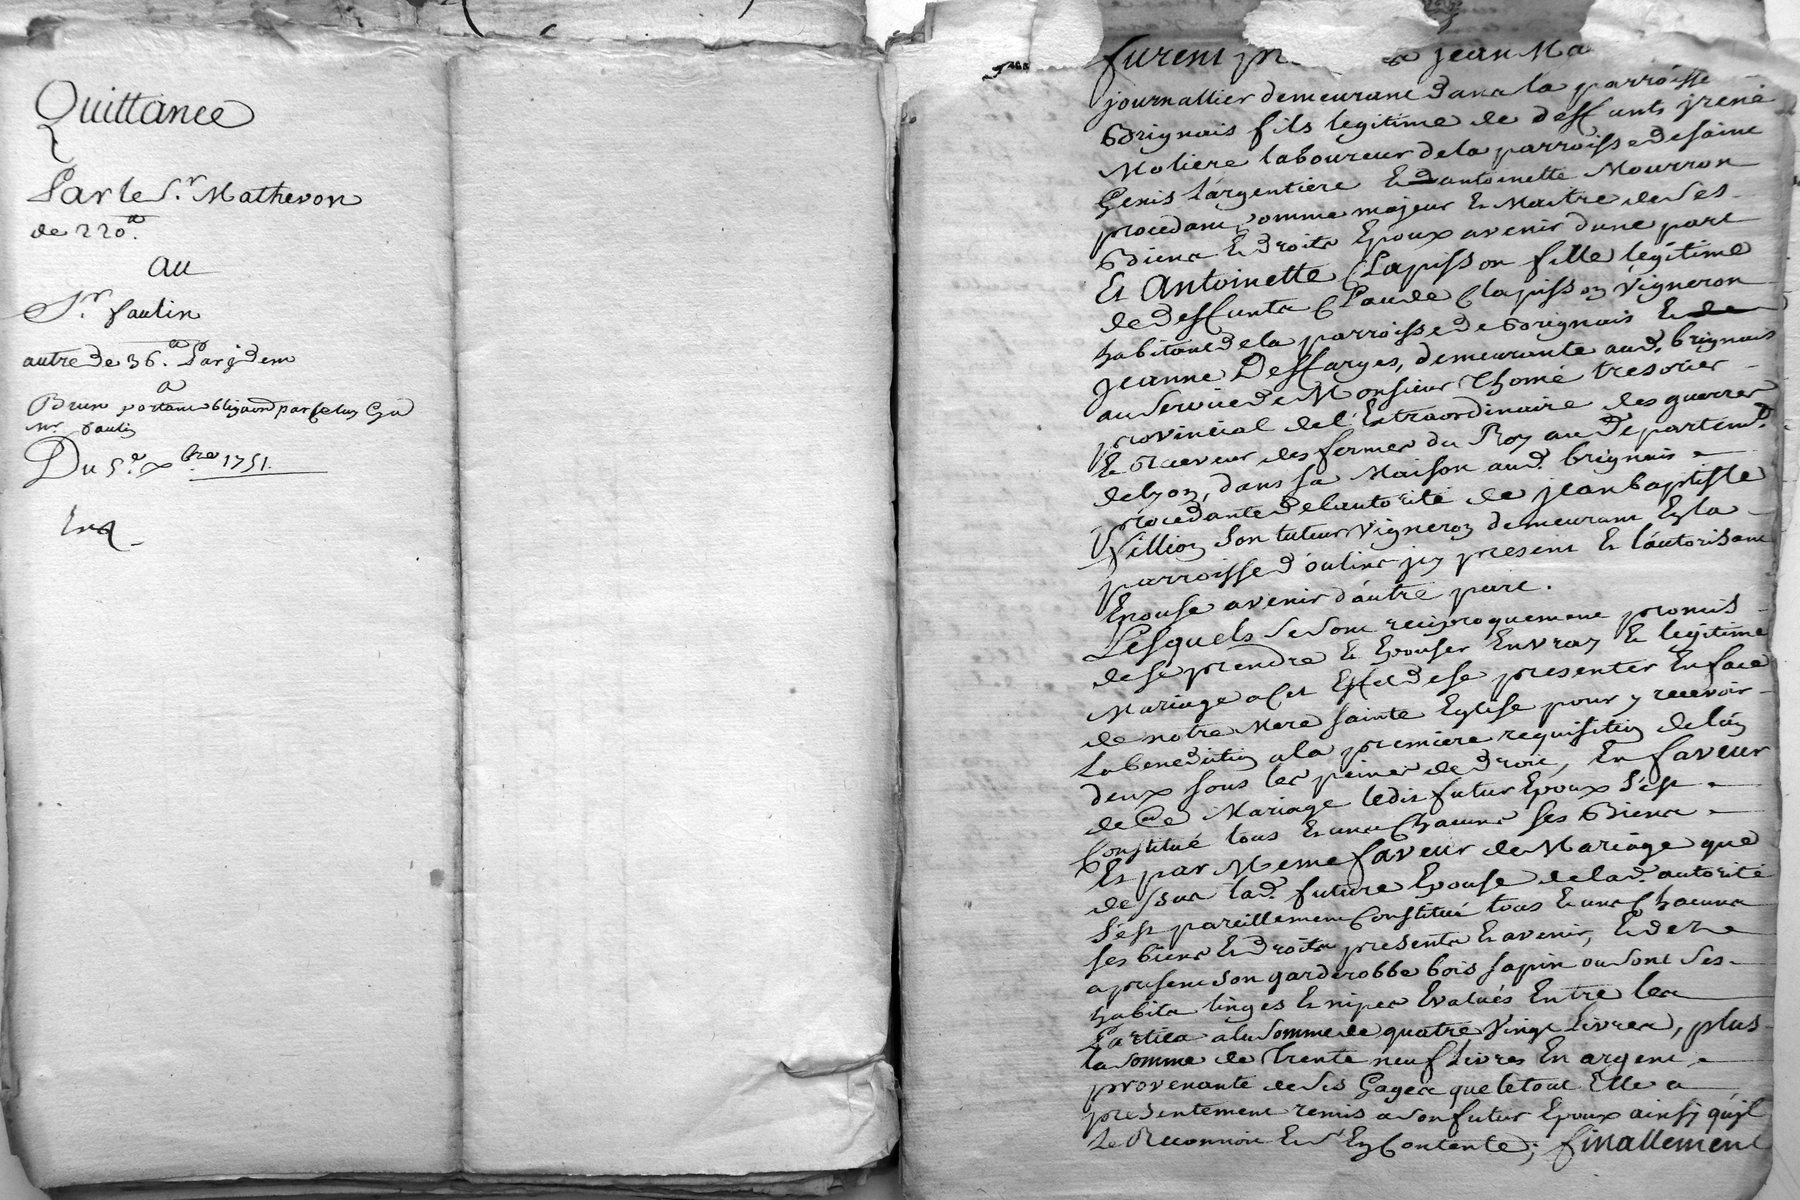 Quittance
Par le Sr. Mathevon
de 220.tt
au
Sr. faulin
autre de 36.tt Par jdem
a
Brun portant
Mr. faulin
Du 5.e xbre 1751.
furent jean Ma
journallier demeurant dans la parroisse
Brignais fils legitime de deffunts jrené
Moliere laboureur de la parroisse de saint
Genis Largentiere Et antoinette Mourron
procedant comme majeur Et Maitre de Ses
Biens Et droits Epoux avenir dune part
Et Antoinette Clapisson fille légitime
de deffunts Claude Clapisson Vigneron
habitant de la parroisse de Brignais Et de
jeanne Deffarges, demeurante aud. brignais
au Service de Monsieur Thomé tresorier
provincial de l'Extraordinaire des guerres
Et Receveur des fermes du Roy au Departemt.
de lyon, dans sa Maison aud. brignais
procedante de lautorité de jean baptiste
Villion Son tuteur Vigneron demeurant En la
parroisse d'oulins jcy present Et l'autorisant
Epouse avenir d'autre part.
Lesquels se Sont reciproquement promis
de se prendre Et Epouser En vray Et legitime
Mariage a Cet Effet de se presenter En face
de notre Mere sainte Eglise pour y recevoir
La benediction a la premiere requisition de lun
deux sous les peines de droit, En faveur
de Ce Mariage ledit futur Epoux S'est
Constitué tous Et uns Chacuns ses Biens
Et par Meme faveur de Mariage que
dessus lad. future Epouse de lad. autorité
S'est pareillement Constitué tous Et uns Chacuns
ses biens Et droits presents Et avenir, Et de
apresent Son garderobbe bois sapin ou Sont Ses
habits linges Et nipes Evalués Entre les
Parties a la Somme de quatre Vingt Livres, plus
la Somme de Trente neuf Livres En argent
provenante de Ses Gages que le tout Elle a
presentement remis a Son futur Epoux ainsy qu'jl
Le Reconnoit Et Sen Contente; finallement